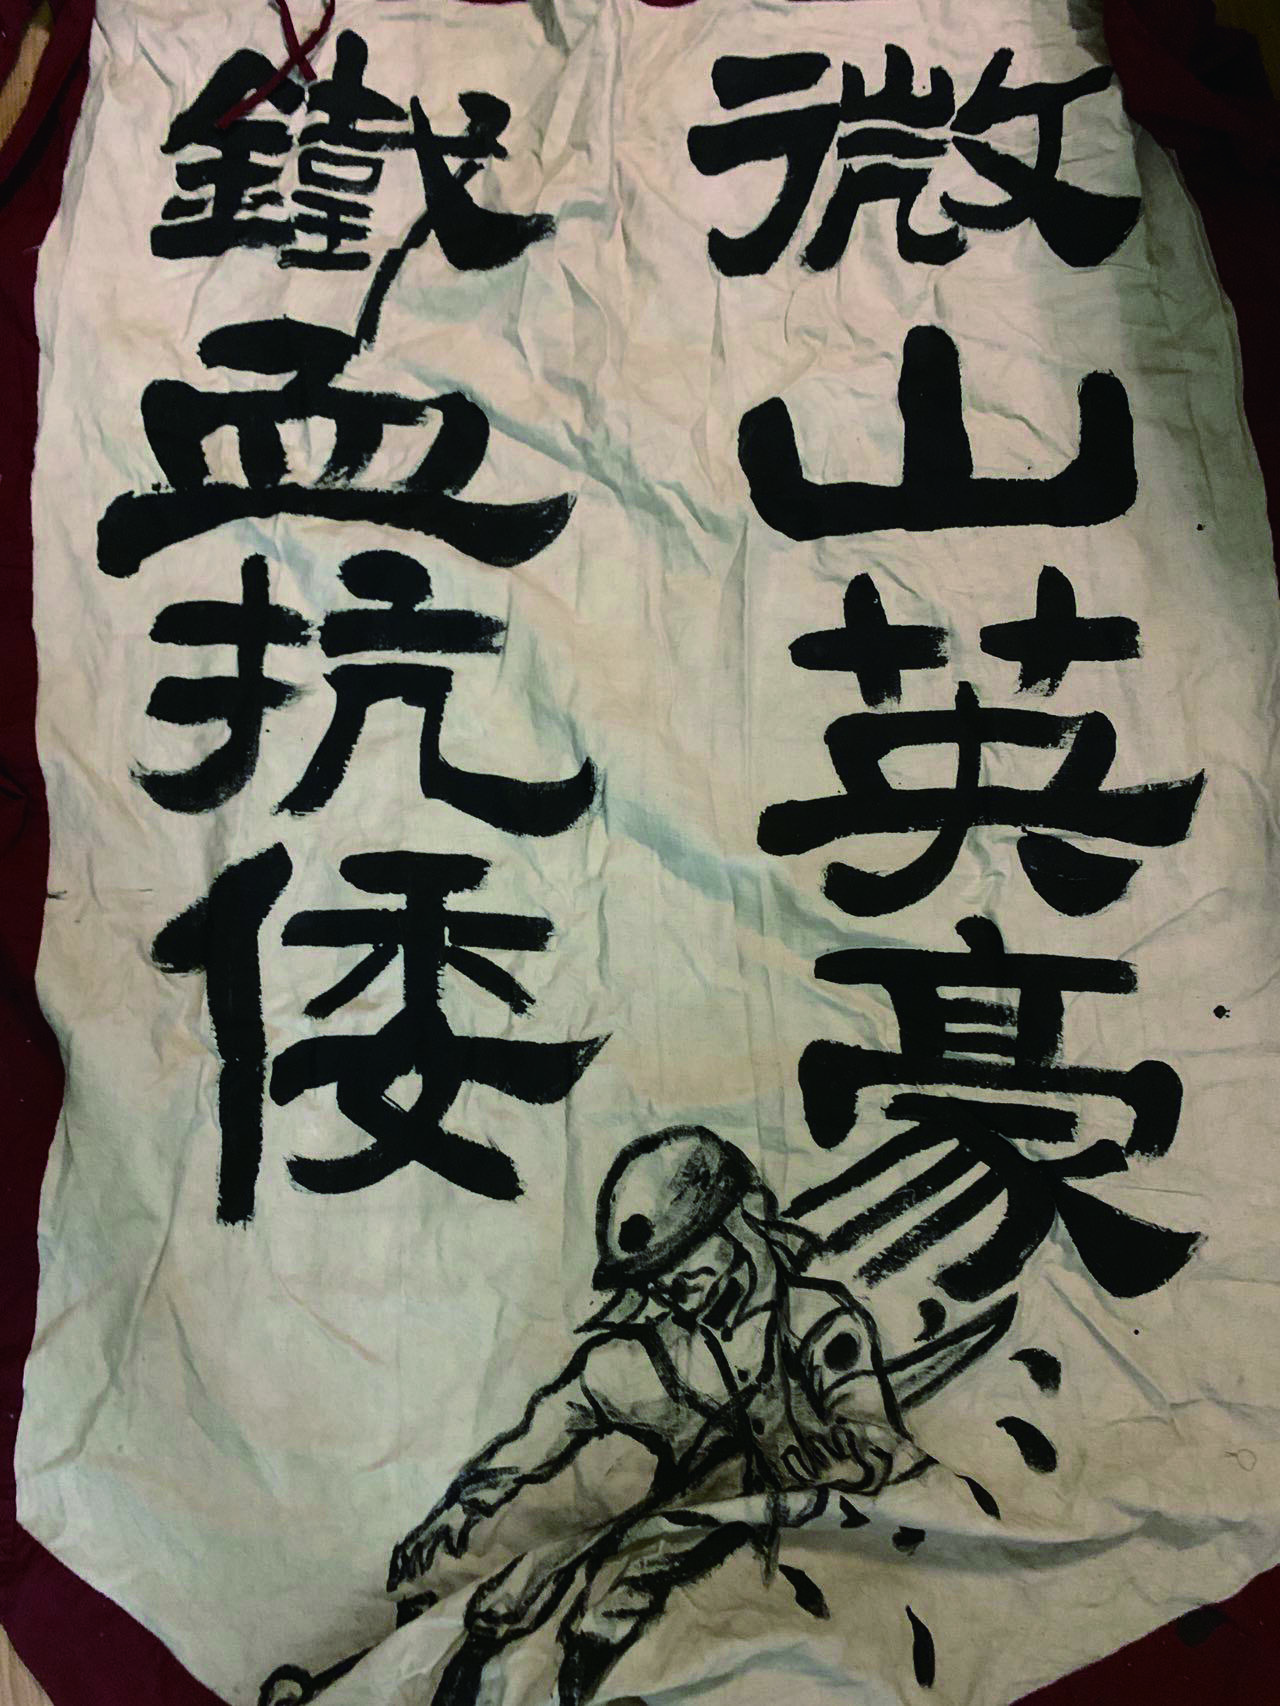 微山英豪
鐵血抗倭